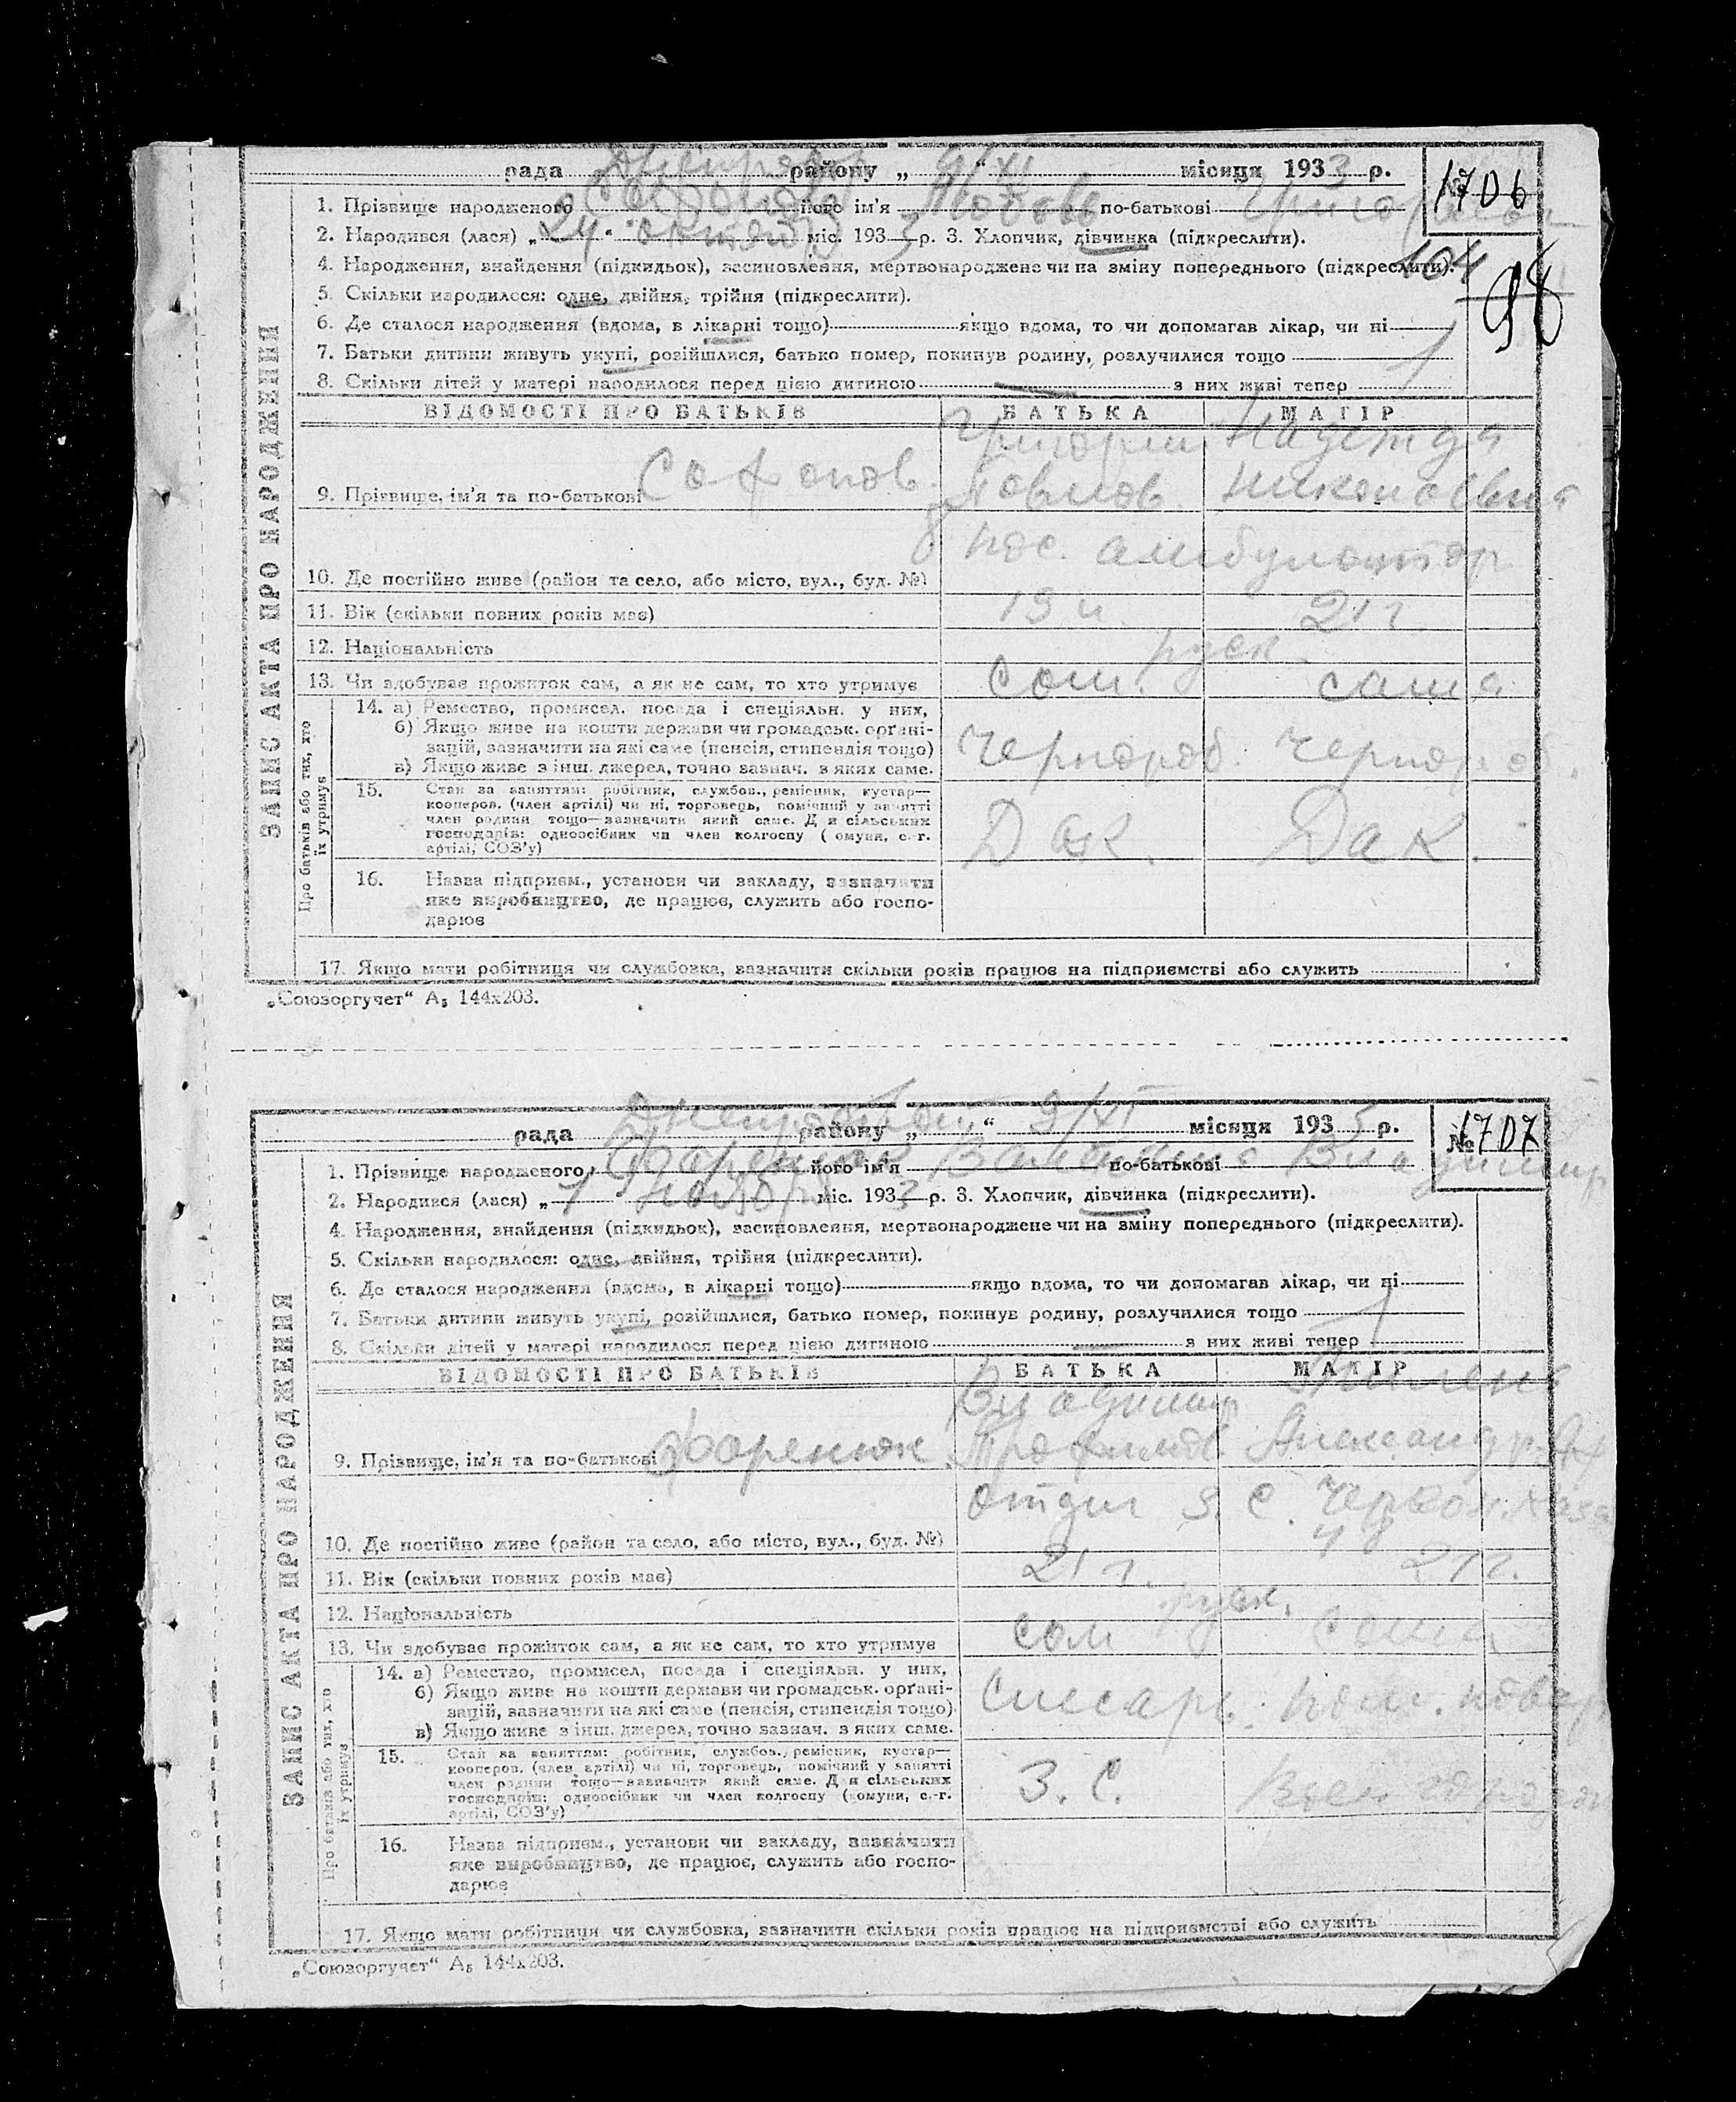 рада Днепряд району „ 9/XI “ місяця 1933 р.
№ 1706
1. Прізвище народженого Сафонова його ім'я Любовь по-батькові
2. Народився (лася) „24“ октября міс. 1933 р. 3. Хлопчик, дівчинка (підкреслити).
4. Народження, знайдення (підкидьок), засиновлення, мертвонароджене чи на зміну попереднього (підкреслити).
104
98
5. Скільки народилося: одне, двійня, трійня (підкреслити).
6. Де сталося народження (вдома, в лікарні тощо) якщо вдома, то чи допомагав лікар, чи ні
7. Батьки дитини живуть укупі, розійшлися, батько помер, покинув родину, розлучилися тощо
8. Скільки дітей у матері народилося перед цією дитиною — з них живі тепер
ЗАПИС АКТА ПРО НАРОДЖЕННЯ
ВІДОМОСТІ ПРО БАТЬКІВ БАТЬКА МАТІР
Григорий Надежда
9. Прізвище, ім'я та по-батькові Сафонов. Павлов. Николаевна
8 пос. амбулатор
10. Де постійно живе (район та село, або місто, вул., буд. №)
11. Вік (скільки повних років має) 19 21 г.
12. Національність руск.
13. Чи здобуває прожиток сам, а як не сам, то хто утримує сам. сама
Про батьків або тих, хто їх утримує
14. а) Ремество, промисел, посада і спеціяльн. у них,
б) Якщо живе на кошти держави чи громадськ. орґані-
зацій, зазначити на які саме (пенсія, стипендія тощо) Чернораб. Чернораб.
в) Якщо живе з інш. джерел, точно зазнач. з яких саме.
15. Стан за заняттям: робітник, службов., ремісник, кустар—
кооперов. (член артілі) чи ні, торговець, помічний у занятті
член родини тощо—зазначити який саме. Для сільських
господарів: одноосібник чи член колгоспу (комуни, с.-г.
артілі, СОЗ'у) Дак. Дак.
16. Назва підприєм., установи чи закладу, зазначити
яке виробництво, де працює, служить або госпо-
дарює
17. Якщо мати робітниця чи службовка, зазначити скільки років працює на підприємстві або служить
„Союзоргучет“ А₅ 144х203.
рада району „ “ 9/XI місяця 193 р.
№ 1707
1. Прізвище народженого Фаренюк його ім'я Валентина по-батькові Владимир
2. Народився (лася) „7“ ноября міс. 1933 р. 3. Хлопчик, дівчинка (підкреслити).
4. Народження, знайдення (підкидьок), засиновлення, мертвонароджене чи на зміну попереднього (підкреслити).
5. Скільки народилося: одне, двійня, трійня (підкреслити).
6. Де сталося народження (вдома, в лікарні тощо) якщо вдома, то чи допомагав лікар, чи ні
7. Батьки дитини живуть укупі, розійшлися, батько помер, покинув родину, розлучилися тощо
8. Скільки дітей у матері народилося перед цією дитиною — з них живі тепер
ЗАПИС АКТА ПРО НАРОДЖЕННЯ
ВІДОМОСТІ ПРО БАТЬКІВ БАТЬКА МАТІР
Владимир
9. Прізвище, ім'я та по-батькові Фаренюк Трофимов. Александр.
З. С.
10. Де постійно живе (район та село, або місто, вул., буд. №) 48
11. Вік (скільки повних років має) 21 г. 21 г.
12. Національність руск.
13. Чи здобуває прожиток сам, а як не сам, то хто утримує сам сама
Про батьків або тих, хто їх утримує
14. а) Ремество, промисел, посада і спеціяльн. у них,
б) Якщо живе на кошти держави чи громадськ. орґані-
зацій, зазначити на які саме (пенсія, стипендія тощо) Слесарь. пом. повар
в) Якщо живе з інш. джерел, точно зазнач. з яких саме.
15. Стан за заняттям: робітник, службов., ремісник, кустар—
кооперов. (член артілі) чи ні, торговець, помічний у занятті
член родини тощо—зазначити який саме. Для сільських
господарів: одноосібник чи член колгоспу (комуни, с.-г.
артілі, СОЗ'у) З. С.
16. Назва підприєм., установи чи закладу, зазначити
яке виробництво, де працює, служить або госпо-
дарює
17. Якщо мати робітниця чи службовка, зазначити скільки років працює на підприємстві або служить
„Союзоргучет“ А₅ 144х203.